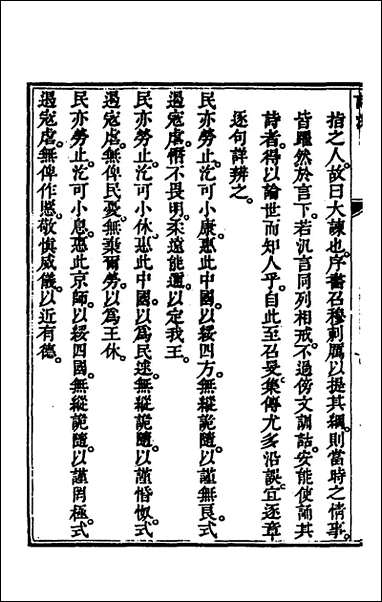 指之人故曰大諫也。序舊召穆刺厲以提其綱。則當時之情事。
皆躍然於言下。若汎言同列相戒。不過傍文訓詁。安能使誦其
詩者。得以論世而知人乎。自此至召旻。集傳尤多沿誤。宜逐章
逐句詳辨之。
民亦勞止。汔可小康。惠此中國。以綏四方。無縱詭隨。以謹無良。式
遏寇虐。憯不畏明。柔遠能邇。以定我王。
民亦勞止。汔可小休。惠此中國。以爲民逑。無縱詭隨。以謹惛怓。式
遏寇虐。無俾民憂。無棄爾勞。以爲王休。
民亦勞止。汔可小息。惠此京師。以綏四國。無縱詭隨。以謹罔極。式
遏寇虐。無俾作慝。敬慎威儀。以近有德。